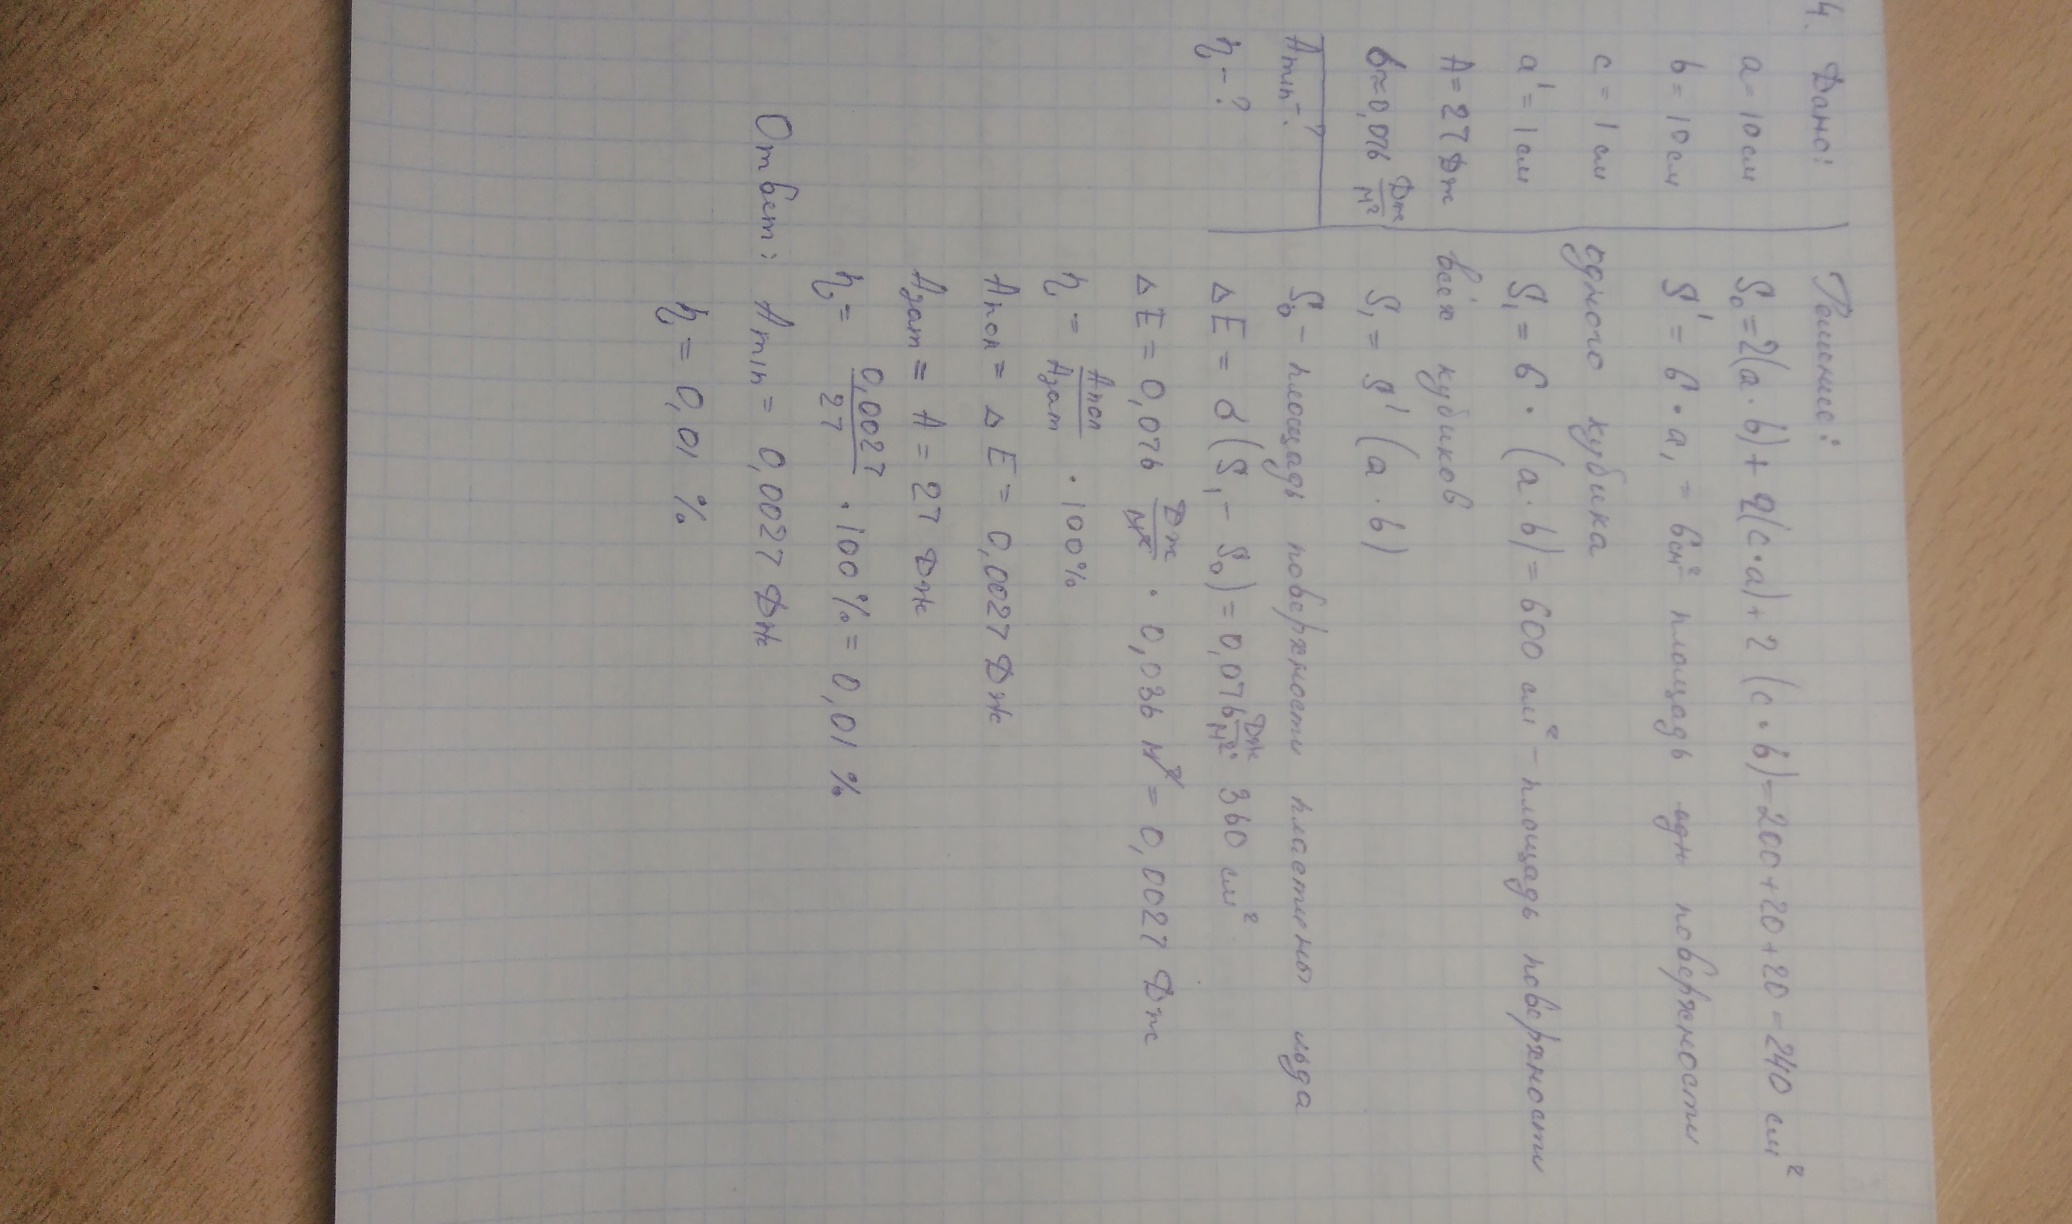 4. Дано:
a = 10 см
b = 10 см
c = 1 см
a' = 1 см
A = 27 Дж
σ = 0,076 Дж/м²
Amin - ?
η - ?
Решение:
S₀ = 2(a·b) + 2(c·a) + 2(c·b) = 200 + 20 + 20 = 240 см²
S' = 6·a₁ = 6см² площадь одн поверхности
одного кубика
S₁ = 6·(a·b) = 600 см² - площадь поверхности
всех кубиков
S₁ = S'(a·b)
S₀ - площадь поверхности пластины льда
ΔE = σ(S₁ - S₀) = 0,076 Дж/м² · 360 см²
ΔE = 0,076 Дж/м² · 0,036 м² = 0,0027 Дж
η = Aпол/Aзат · 100%
Aпол = ΔE = 0,0027 Дж
Aзат = A = 27 Дж
η = 0,0027/27 · 100% = 0,01 %
Ответ: Amin = 0,0027 Дж
η = 0,01 %